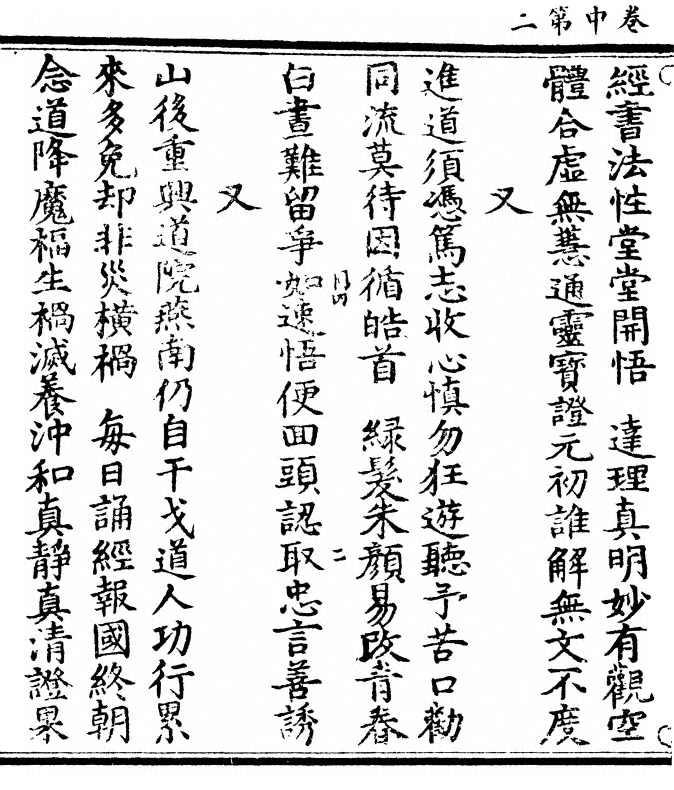 卷中第二
經書法性堂堂開悟　達理真明妙有觀空
體合虛無慧通靈寶證元初誰解無文不度
又
進道須憑篤志收心慎勿狂遊聽予苦口勸
同流莫待因循皓首　緑髮朱顔易改青春
白晝難留爭如速悟便回頭認取忠言善誘
二
又
山後重興道院燕南仍自干戈道人功行累
來多免却非災橫禍　每日誦經報國終朝
念道降魔福生禍滅養沖和真靜真清證果